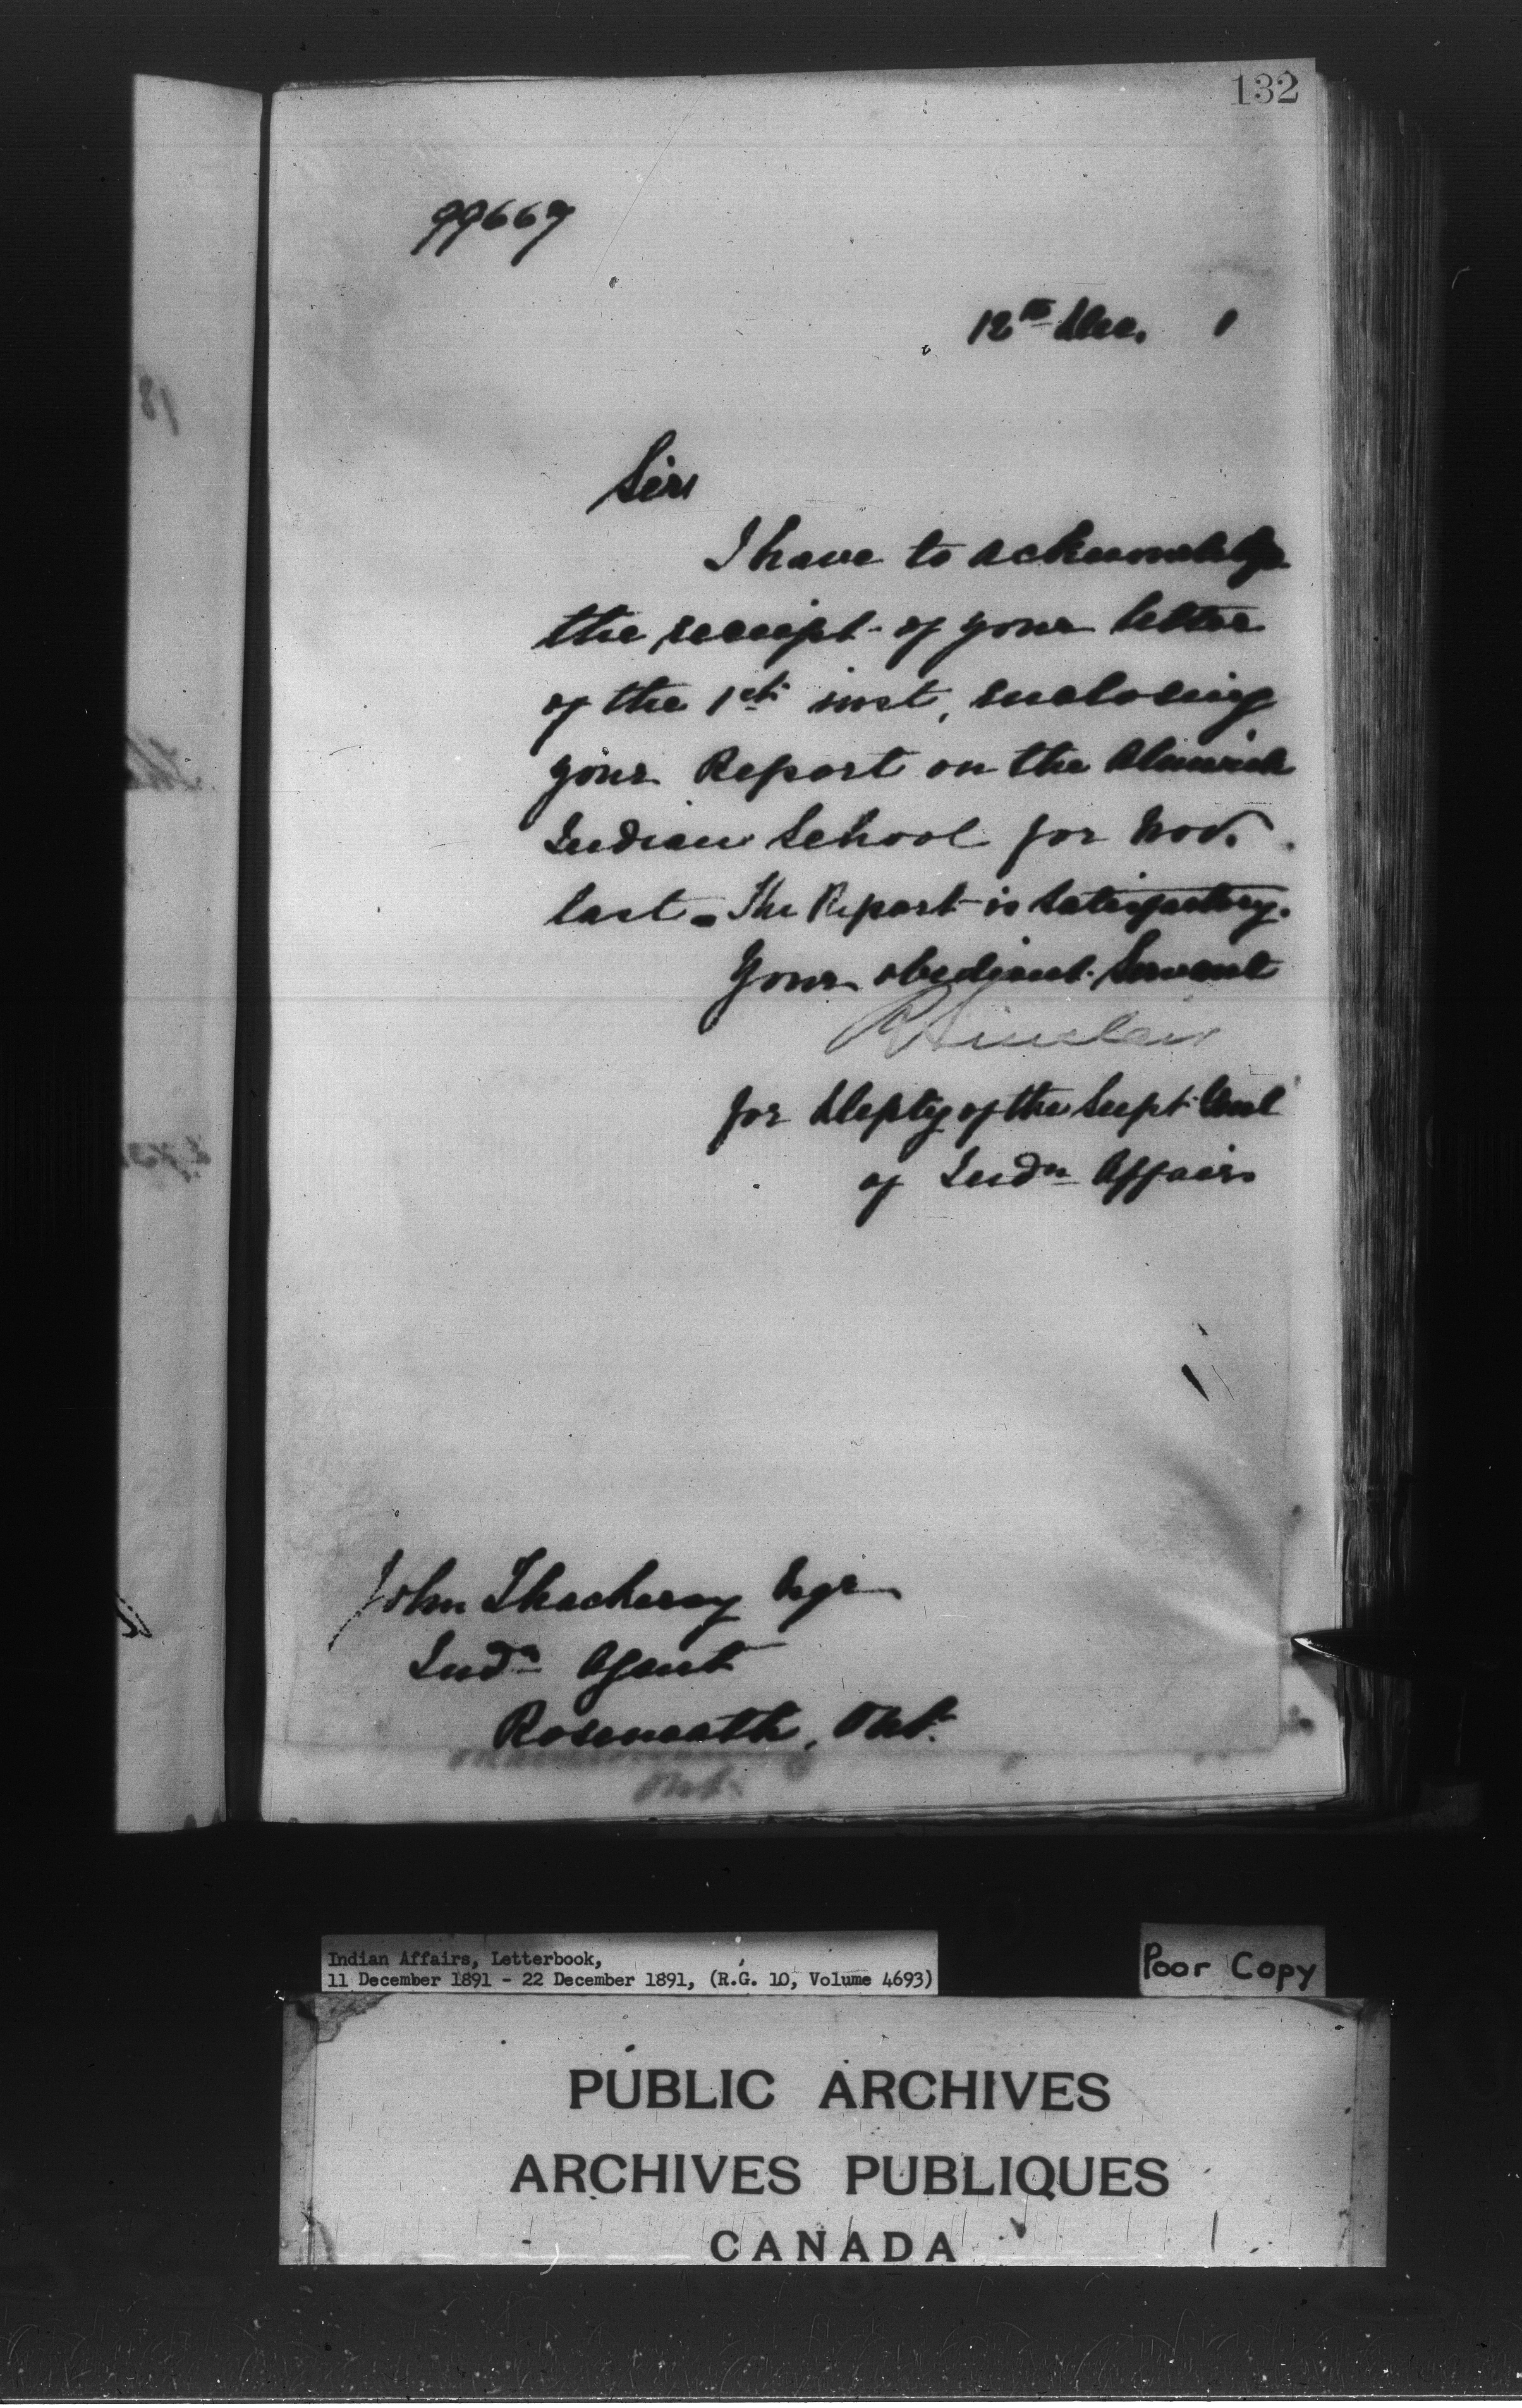 132
99669
12th Dec. 1
Sir,
I have to acknowledge
the receipt of your letter
of the 1st inst, enclosing
your Report on the Alnwick
Indian School for Nov.
last. The Report is satisfactory.
Your obedient Servant
R Sinclair
for Depty of the Supt. Genl
of Indn Affairs
John Thackeray Esqr
Indn Agent
Roseneath, Ont.
Ont.
Indian Affairs, Letterbook,
11 December 1891 - 22 December 1891, (R.G. 10, Volume 4693)
Poor Copy
PUBLIC ARCHIVES
ARCHIVES PUBLIQUES
CANADA